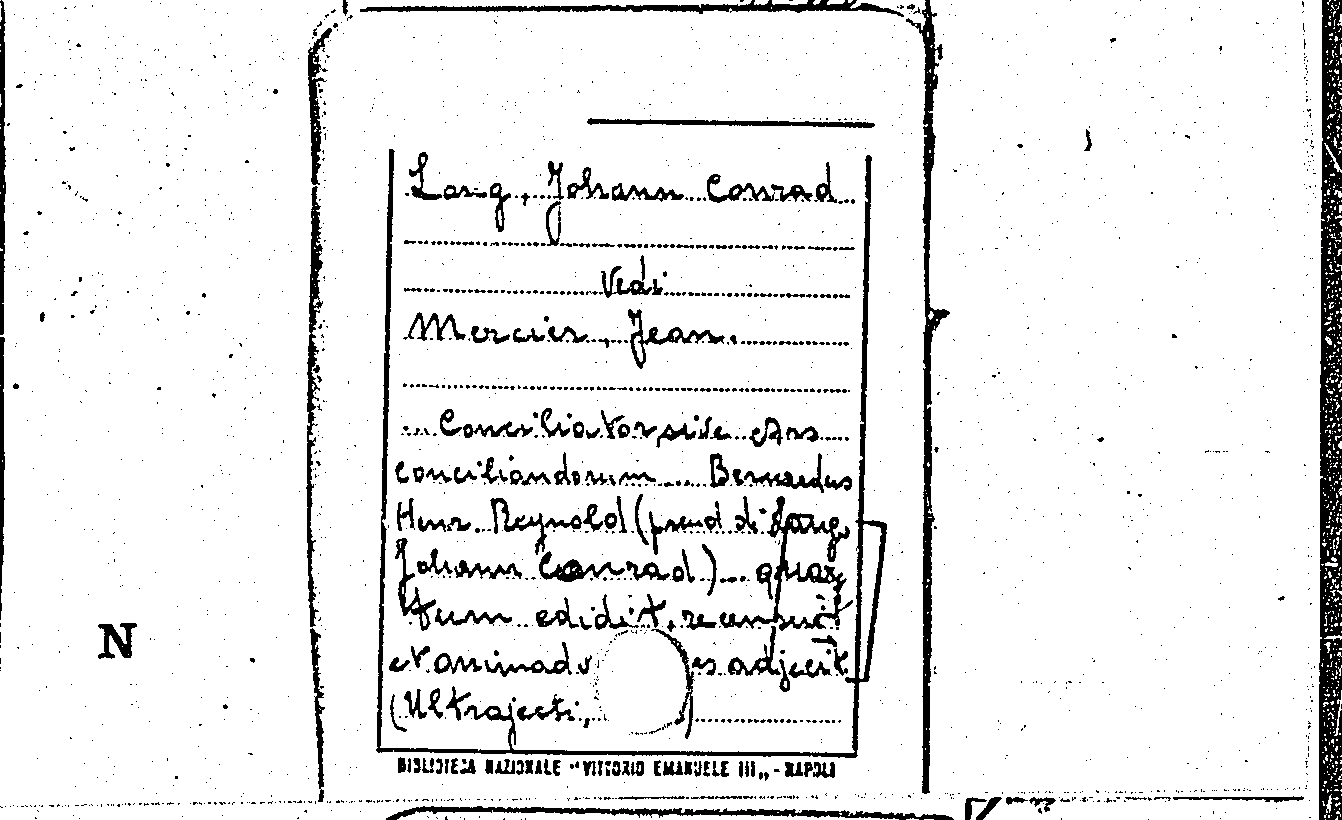 Lang, Johann Conrad
Vedi
Mercier, Jean.
... Conciliator, sive Ars
conciliandorum ... Bernardus
Henr. Reynold (pseud di Lang,
Johann Conrad) ... quar
tum edidit, recensuit
et animadv es adjecit
(Ultrajecti, )
BIBLIOTECA NAZIONALE "VITTORIO EMANUELE III„ - NAPOLI
N